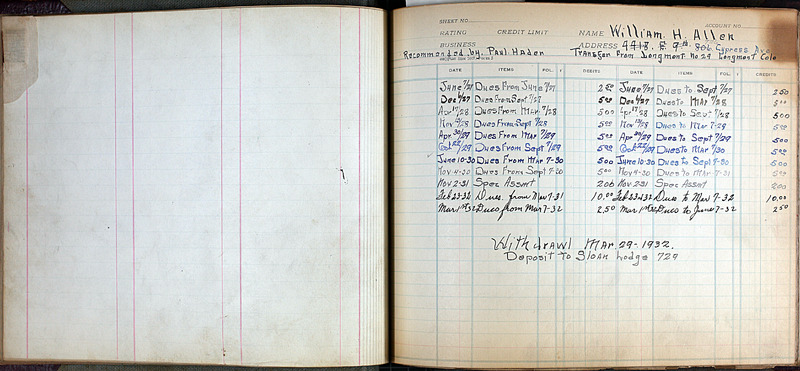 SHEET NO. ACCOUNT NO.
RATING CREDIT LIMIT NAME William. H. Allen
BUSINESS ADDRESS 4418. E 9th 806 Cypress Ave
Recommended by. Paul Haden Transfer From Longment No 29 Longment Colo
DATE ITEMS FOL. DEBITS DATE ITEMS FOL. CREDITS
June 7/27 Dues From June 7/27 2 50 June 7/27 Dues to Sept 7/27 2 50
Dec 6/27 Dues From Sept 7/27 5 00 Dec 6/27 Dues to MAR 7/28 5 00
Apr 17/28 Dues From MAR 7/28 5 00 Apr 17/28 Dues to Sept 7/28 5 00
Nov /28 Dues From Sept 7/28 5 00 Nov /28 Dues to Mar 7-29 5 00
Apr 30/29 Dues From MAR 7/29 5 00 Apr 30/29 Dues to Sept 7/29 5 00
Oct 22/29 Dues From Sept 7/29 5 00 Oct 22/29 Dues to Mar 7/30 5 00
June 10-30 Dues From MAR 7-30 5 00 June 10-30 Dues to Sept 7-30 5 00
Nov 4-30 Dues From Sept 7-30 5 00 Nov 4-30 Dues to Mar 7-31 5 00
Nov 2-31 Spec Assmt 2 00 Nov 2-31 Spec Assmt 2 00
Feb 23-32 Dues. from Mar 7-31 10.00 Feb 23-32 Dues to Mar 7-32 10.00
Mar 1st 32 Dues from Mar 7-32 2.50 Mar 1st 32 Dues to June 7-32 2.50
Withdrawl MAR 29-1932.
Deposit to Sloan Lodge 729